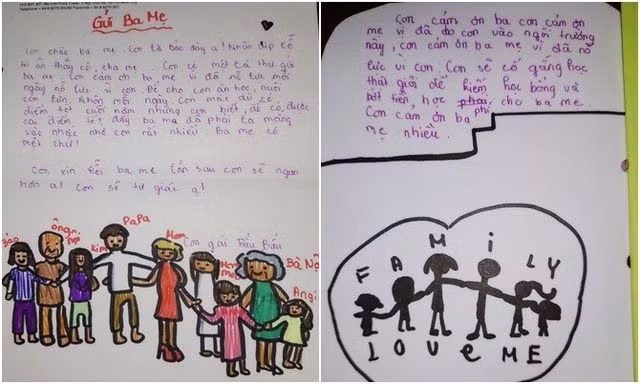 Gửi Ba Mẹ
Con chào ba mẹ. Con từ bảo đây ạ! Nhân dịp lễ
tri ân thầy cô, cha mẹ. Con có một lá thư gửi
ba ạ. Con cảm ơn ba, mẹ vì đã nỗ lực mỗi
ngày nỗ lực vì con. Để cho con ăn học, nuôi
con lớn khôn mỗi ngày. Con mặc dù có
điểm tốt cuối năm nhưng con biết để có được
cái điểm tốt đấy ba mẹ đã phải la mắng
vác nhọc nhẽ con rất nhiều. Ba mẹ có
mệt chứ!
Con xin lỗi ba mẹ lần sau con sẽ ngoan
hơn ạ! Con sẽ tự giác ạ!
Con gái Bầu Bầu
Bảo
ông nội
Kim
PaPa
Mom
Anna
Bà Nội
Angi
Con cảm ơn ba con cảm ơn
mẹ vì đã cho con vào ngôi trường
này, con cảm ơn ba mẹ vì đã nỗ
lực vì con. Con sẽ cố gắng học
thật giỏi để kiếm học bổng và
bớt tiền, học phí cho ba mẹ.
Con cảm ơn ba
mẹ nhiều.
FAMiLY
LOVeME